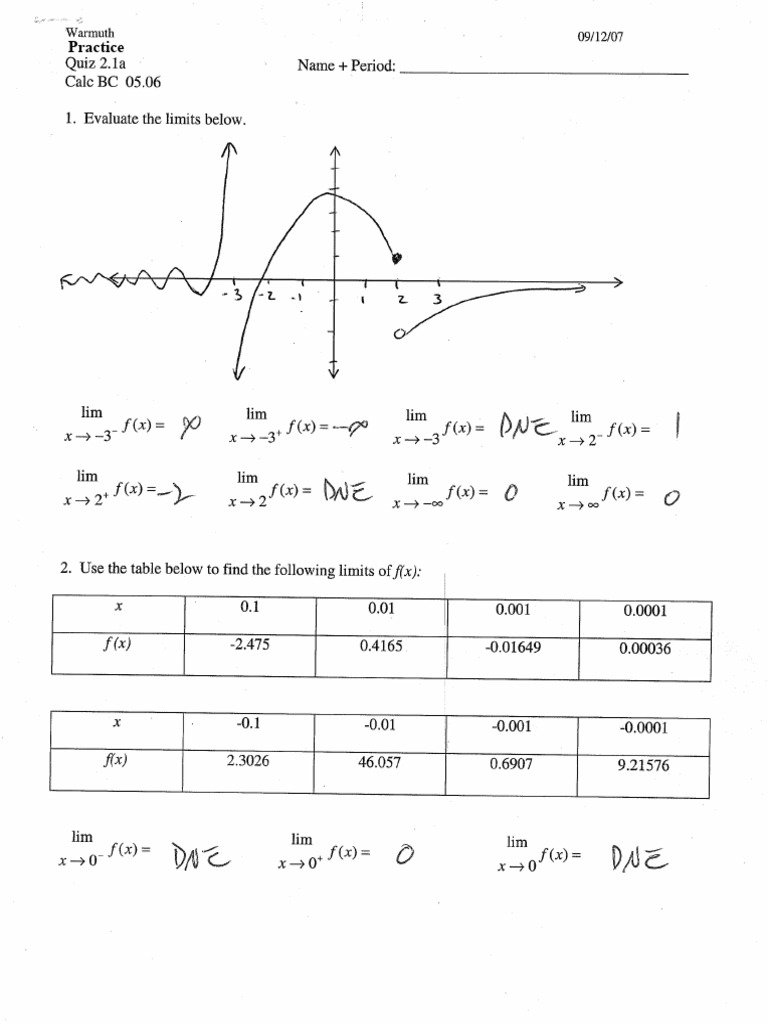 Warmuth 09/12/07
Practice
Quiz 2.1a Name + Period:
Calc BC 05.06
1. Evaluate the limits below.
-3 -2 -1 1 2 3
lim x → −3⁻ f(x) = ∞ lim x → −3⁺ f(x) = −∞ lim x → −3 f(x) = DNE lim x → 2⁻ f(x) = 1
lim x → 2⁺ f(x) = −2 lim x → 2 f(x) = DNE lim x → −∞ f(x) = 0 lim x → ∞ f(x) = 0
2. Use the table below to find the following limits of f(x):
x 0.1 0.01 0.001 0.0001
f(x) -2.475 0.4165 -0.01649 0.00036
x -0.1 -0.01 -0.001 -0.0001
f(x) 2.3026 46.057 0.6907 9.21576
lim x → 0⁻ f(x) = DNE lim x → 0⁺ f(x) = 0 lim x → 0 f(x) = DNE